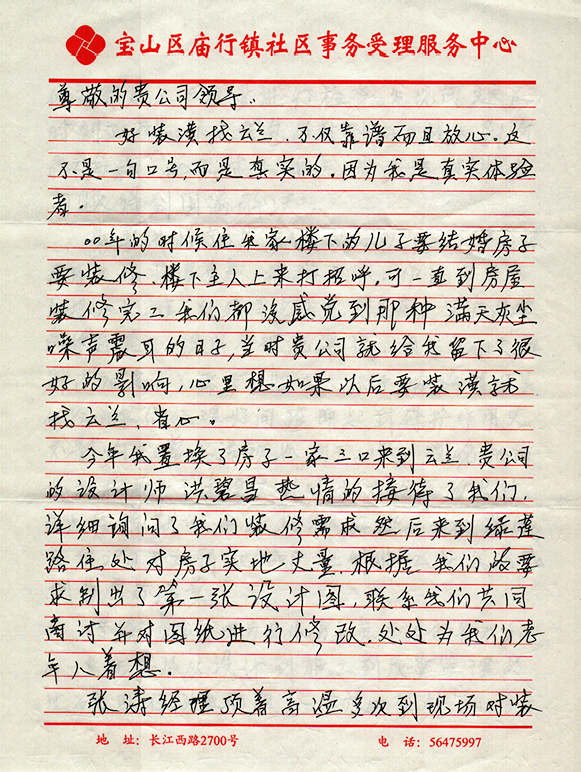 宝山区庙行镇社区事务受理服务中心
尊敬的贵公司领导.
好装潢找云兰.不仅靠谱而且放心.这
不是一句口号,而是真实的.因为我是真实体验
者.
00年的时候住我家楼下的儿子要结婚房子
要装修.楼下主人上来打招呼,可一直到房屋
装修完工我们都没感觉到那种满天灰尘
噪声震耳的日子,当时贵公司就给我留下了很
好的影响,心里想如果以后要装潢就
找云兰,省心.
今年我置换了房子一家三口来到云兰.贵公司
的设计师洪碧昌热情的接待了我们,
详细询问了我们装修需求然后来到绿莲
路住处对房子实地丈量.根据我们的要
求制出了第一张设计图,联系我们共同
商讨并对图纸进行修改.处处为我们老
年人着想.
张涛经理顶着高温多次到现场对装
地 址:长江西路2700号 电 话:56475997